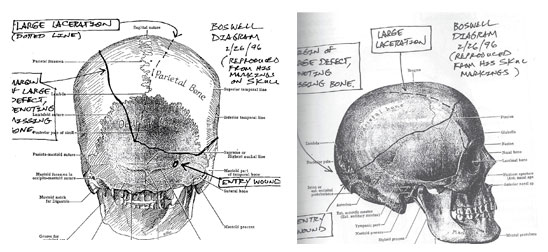 LARGE LACERATION
(DOTTED LINE)
Sagittal suture
BOSWELL
DIAGRAM
2/26/96
(REPRODUCED
FROM HIS
MARKINGS
ON SKULL
Parietal foramen
Parietal Bone
MARGIN
OF LARGE
DEFECT,
DENOTING
MISSING
BONE.
Superior temporal line
Lambdoid suture
Inferior temporal line
Parieto-mastoid suture
Supreme or
Highest nuchal line
Mastoid foramen in
occipito-mastoid suture
Mastoid part
of temporal bone
ENTRY WOUND
Mastoid notch
for Digastric
Mastoid process
Groove for
LARGE
LACERATION
BOSWELL
DIAGRAM
2/26/96
(REPRODUCED
FROM HIS SKULL
MARKINGS)
GIN OF
GE DEFECT,
NOTING
SSING BONE.
Bregma
Parietal bone
Lambda
Glabella
Nasion
Nasal bone
Lacrimal bone
Anterior nasal sp
ENTRY
WOUND
Temporal
Mastoid process
Styloid process